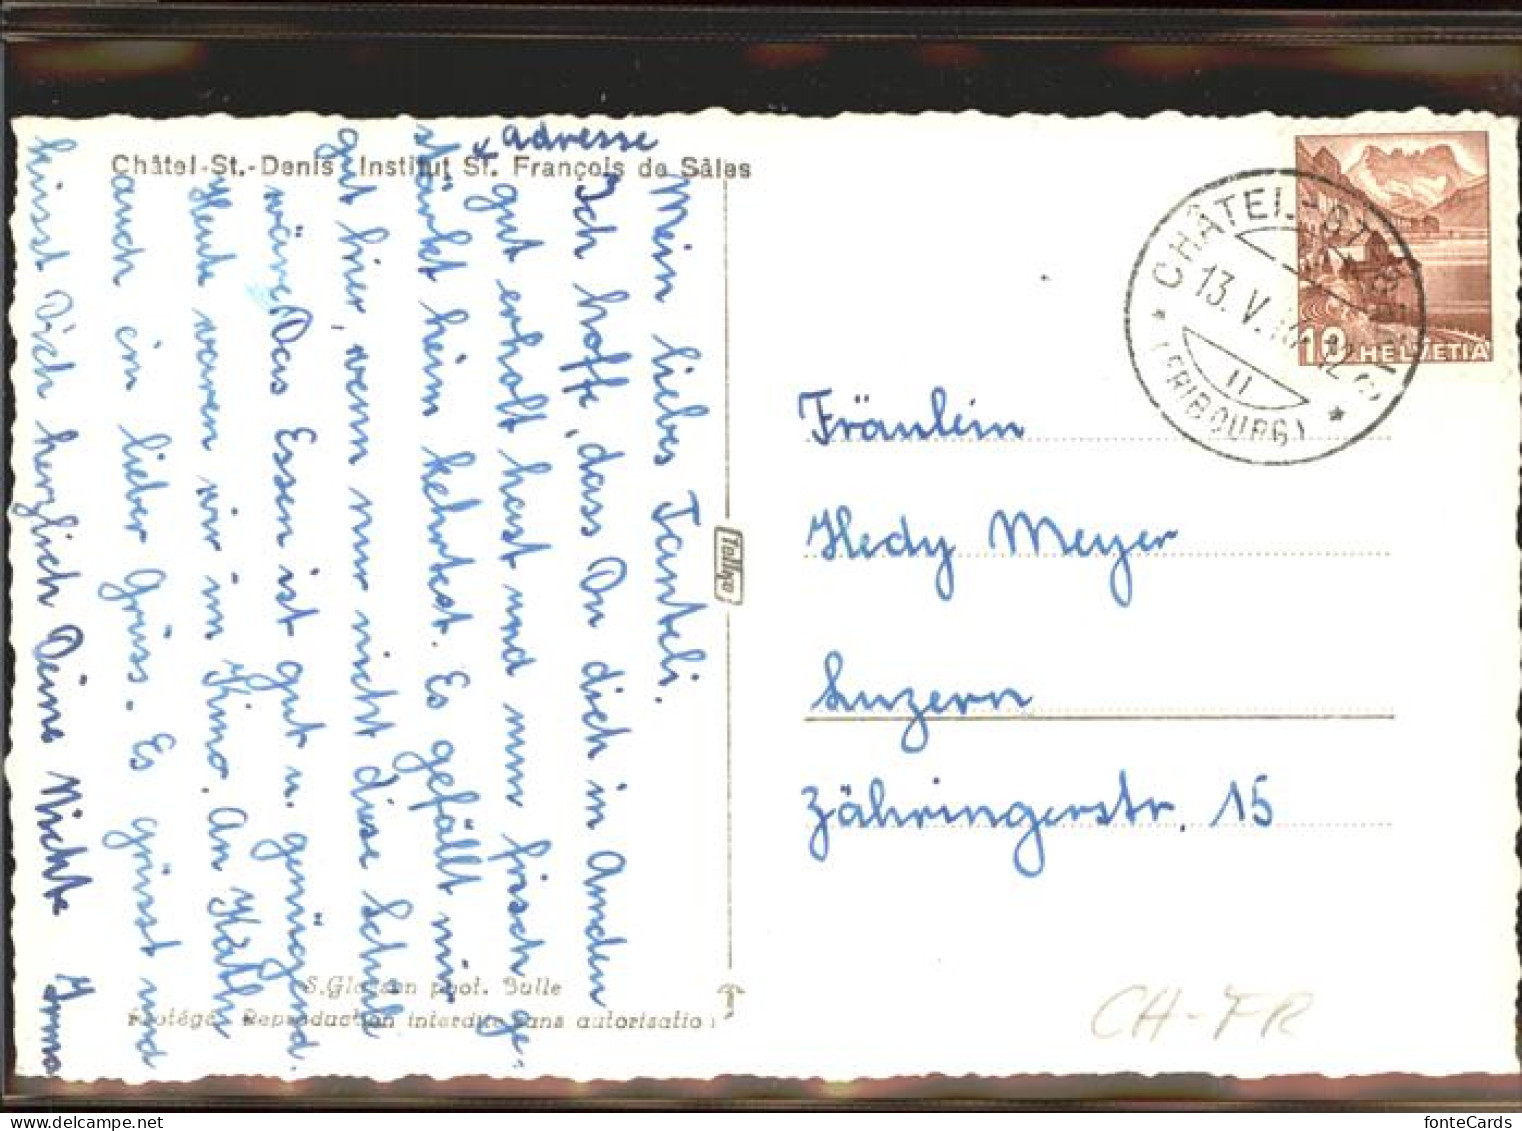 Châtel-St.-Denis Institut St. François de Sales
adresse
Mein liebes Tanteli.
Ich hoffe, dass Du dich in Amden
gut erholt hast und nun frisch ge-
stärkt heim kehrtest. Es gefällt mir
gut hier, wenn nur nicht diese Schule
wäre. Das Essen ist gut u. genügend.
Heute waren wir im Kino. An Käthi
auch ein lieber Grüss. Es grüsst und
küsst Dich herzlich Deine Nichte Irma
S. Glasson phot. Bulle
Protégé. Reproduction interdite sans autorisation
CHÂTEL-ST-DENIS
13. V.
(FRIBOURG)
10 HELVETIA
Fräulein
Hedy Meyer
Luzern
Zähringerstr. 15
CH-FR
fonteCards